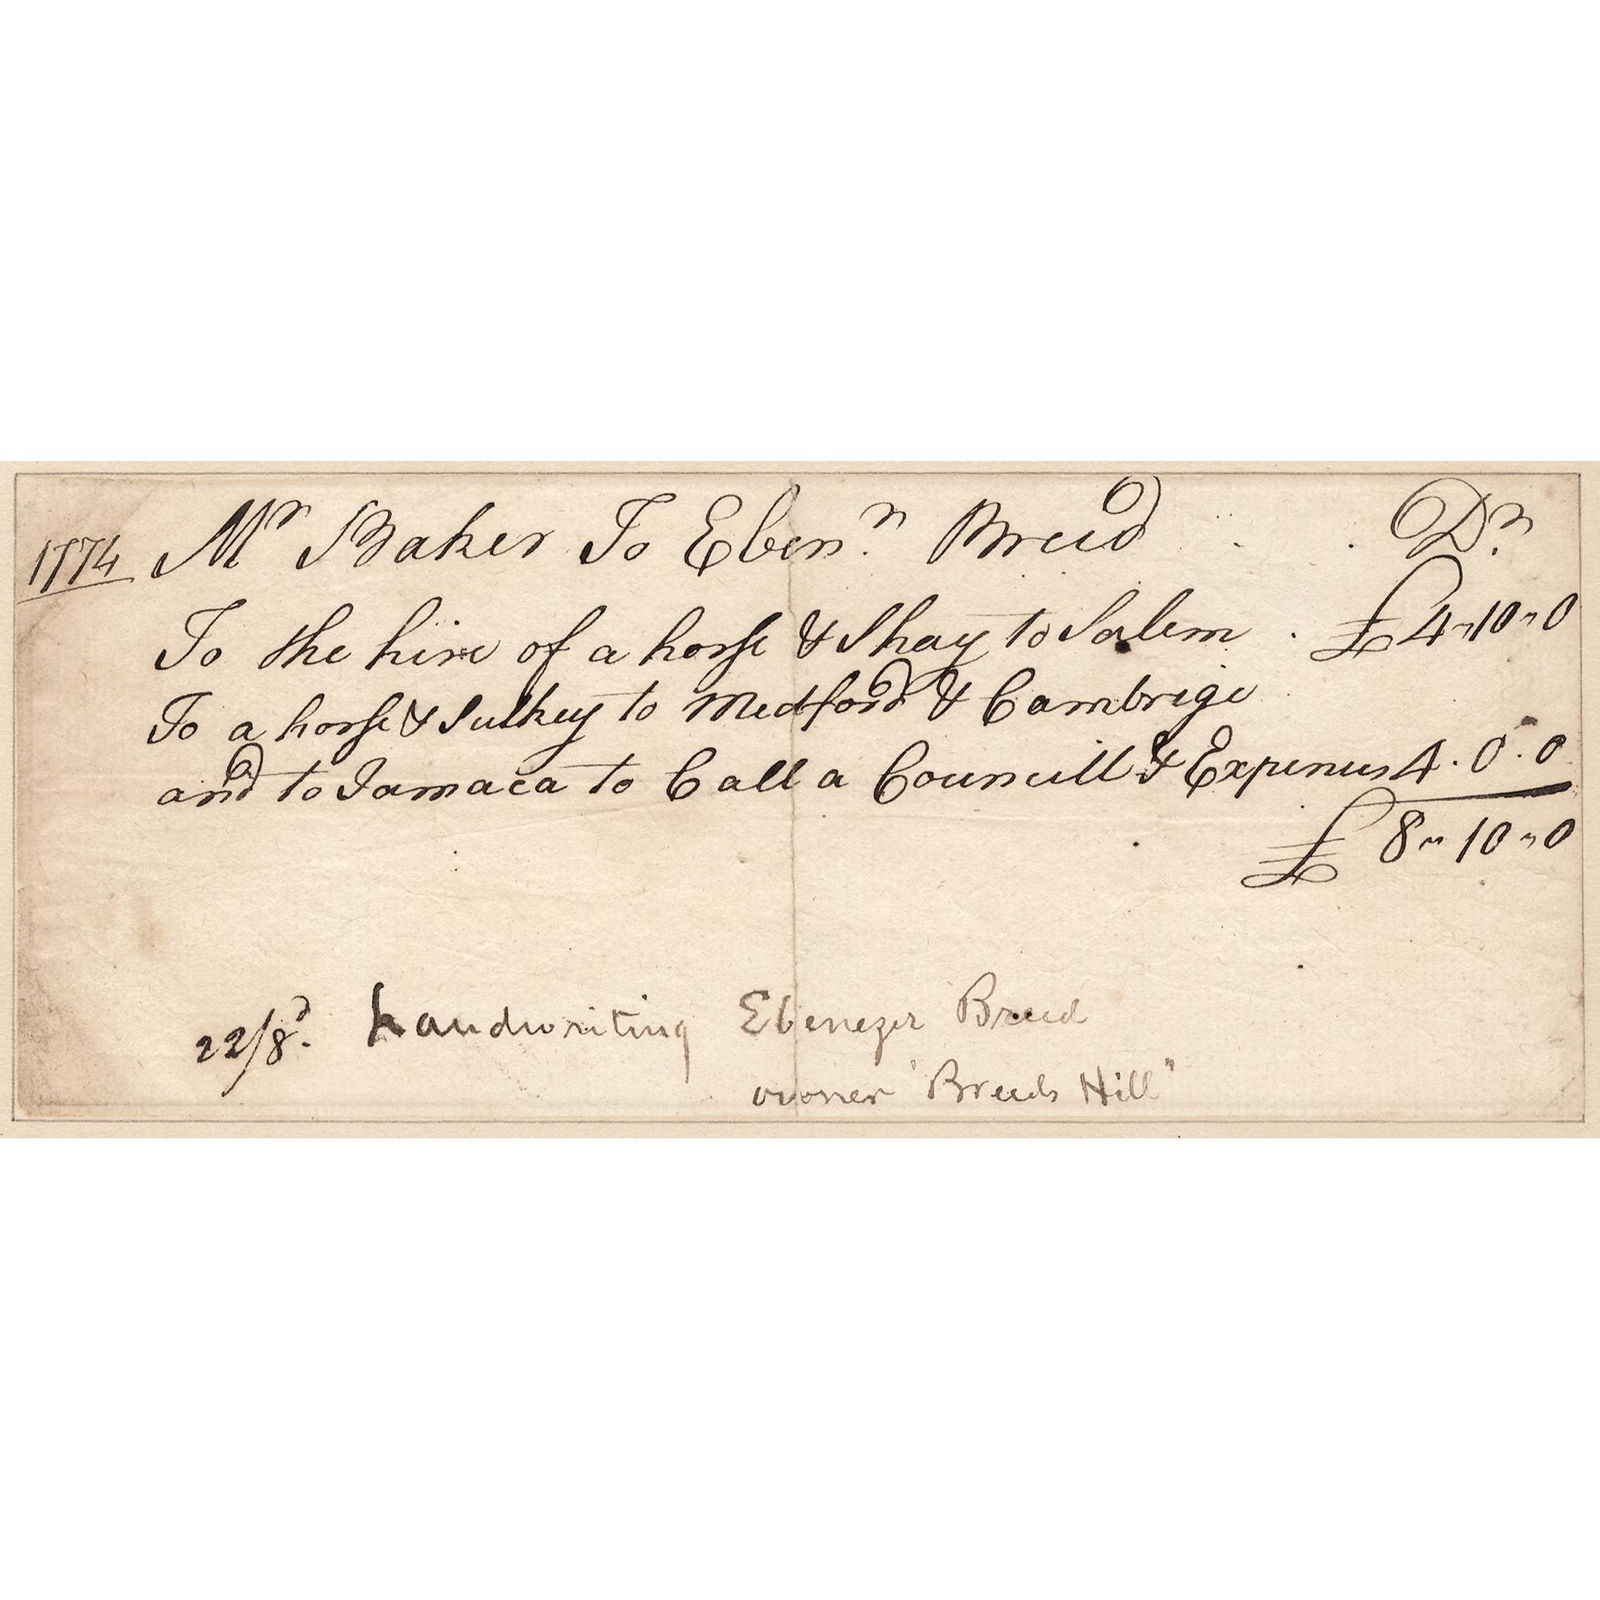 1774 Mr Baker To Ebenr Breed . . Dr.
To the hire of a horse & Shay to Salem . £4"10"0
To a horse & Sulkey to Medford & Cambrige
and to Jamaca to Call a Councill & Expenses 4.0.0
£ 8"10"0
22/8d. handwriting Ebenezer Breed
owner "Breeds Hill"